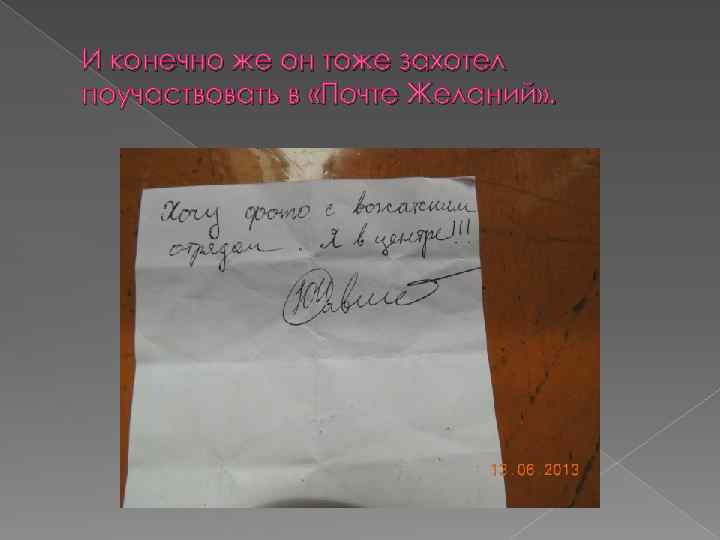 И конечно же он тоже захотел
поучаствовать в «Почте Желаний».
Хочу фото с вожатским
отрядом. Я в центре!!!
13.06.2013